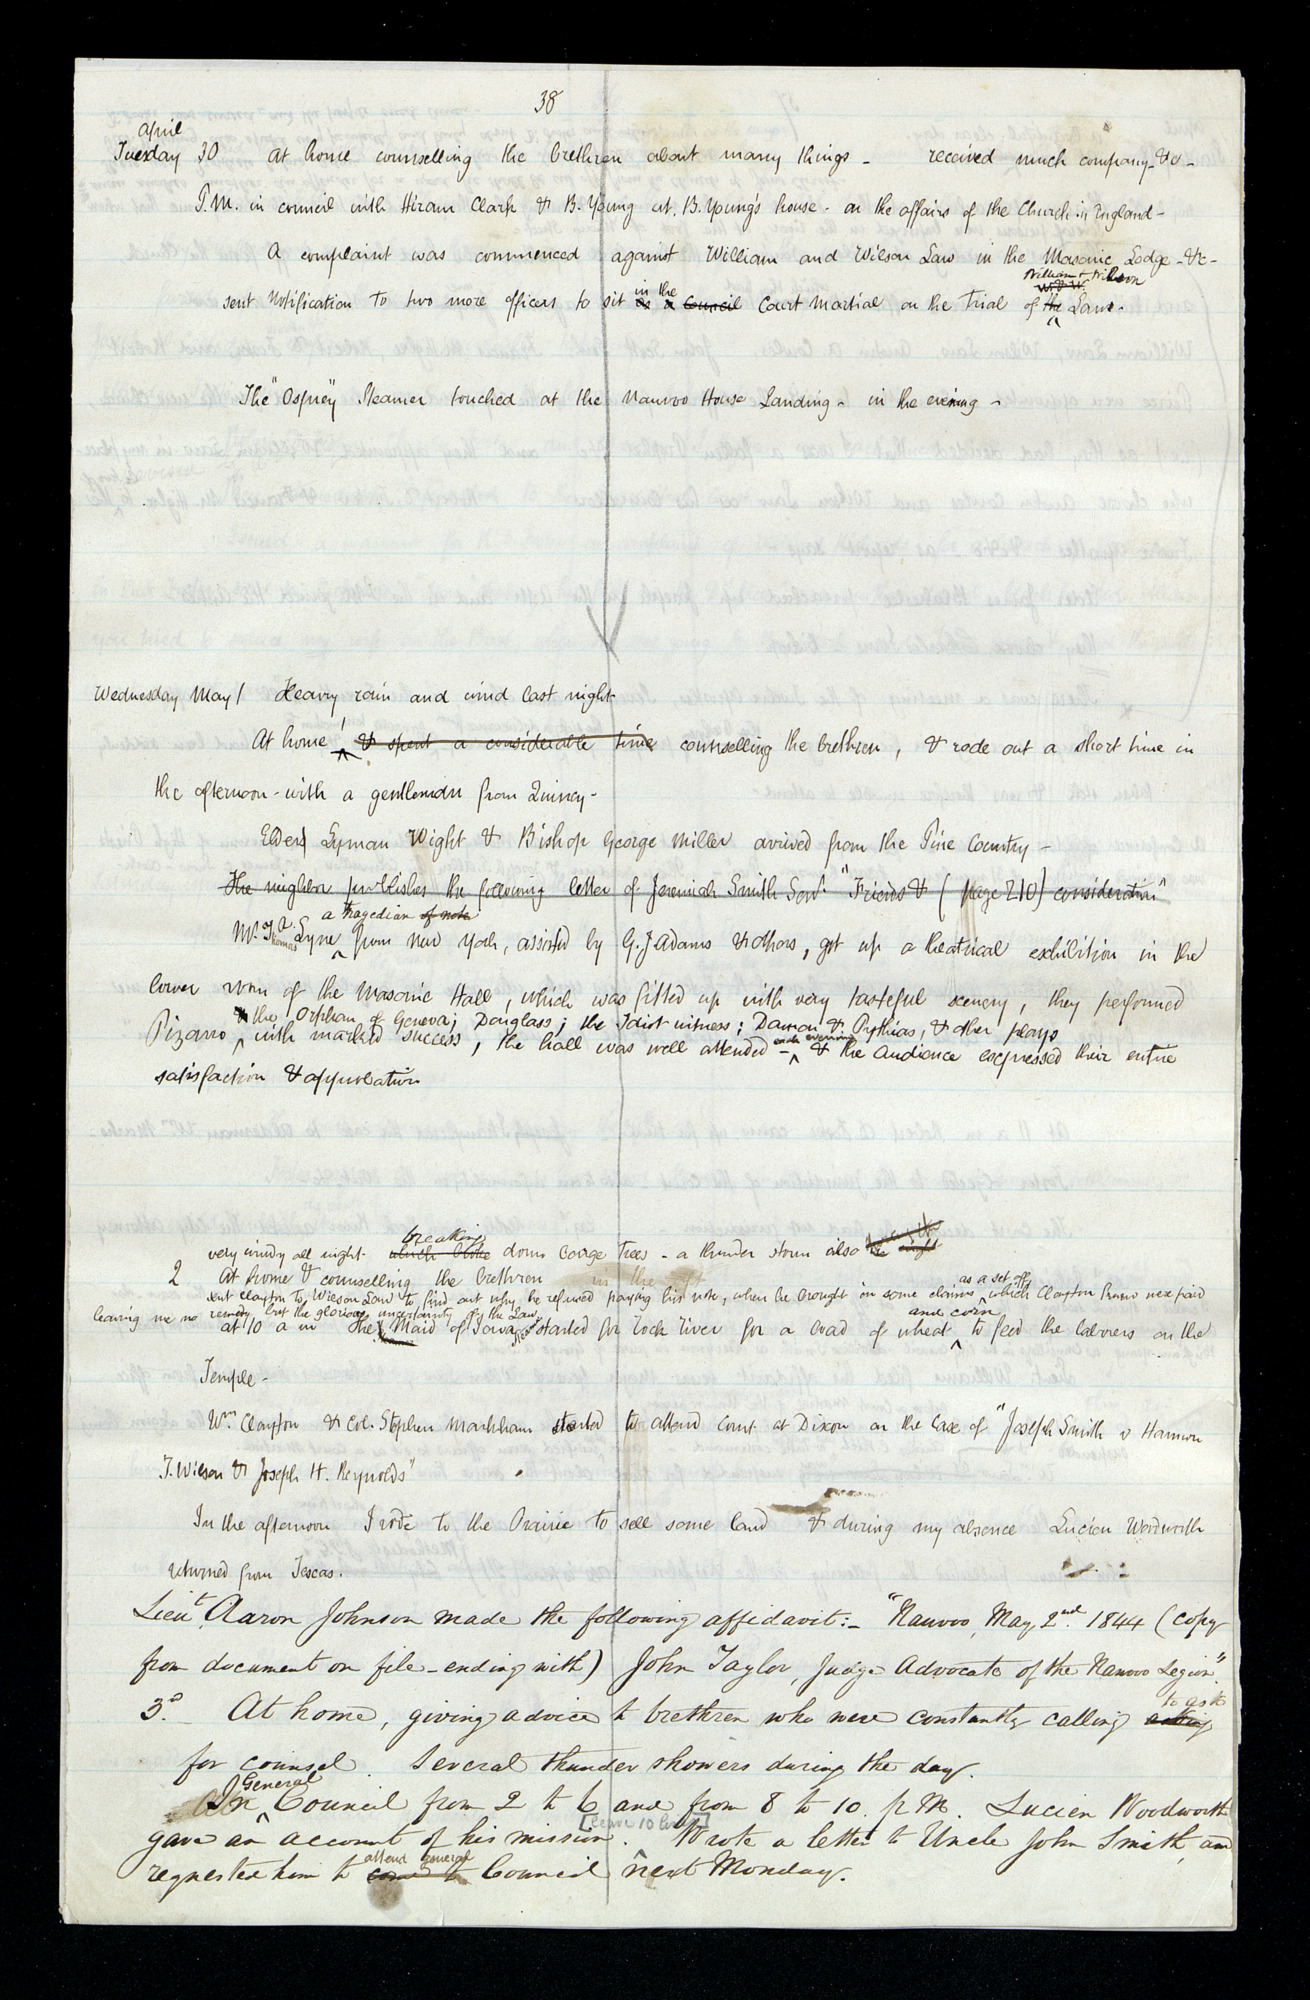 38
April
Tuesday 30 At home counselling the brethren about many things - received much company - &c -
P.M. in council with Hiram Clark & B. Young at B. Young's house - on the affairs of the Church in England -
A complaint was commenced against William and Wilson Law in the Masonic Lodge - &c -
William & Wilson
W & W.
in the
sent Notification to two more officers to sit as a Council Court Martial on the Trial of the Laws.
The "Osprey" Steamer touched at the Nauvoo House Landing - in the evening -
Wednesday May 1 Heavy rain and wind last night
At home & spent a considerable time counselling the brethren, & rode out a short time in
the afternoon - with a gentleman from Quincy -
Elder Lyman Wight & Bishop George Miller arrived from the Pine Country -
The neighbor publishes the following letter of Jeremiah Smith Senr. "Friends & (page 210) consideration"
a tragedian of note
Mr. Thomas A. Lyne from New York, assisted by G. J Adams & others, got up a theatrical exhibition in the
lower room of the Masonic Hall, which was fitted up with very tasteful scenery, they performed
the Orphan of Geneva; Douglass; the Idiot witness; Damon & Pythias, & other plays
Pizarro with marked success, the hall was well attended - each evening & the Audience expressed their entire
satisfaction & approbation
breaking
very windy all night which broke down large trees - a thunder storm also
2 At home & counselling the brethren
as a set off
sent Clayton to Wilson Law to find out why he refused paying his note, when he brought in some claims which Clayton knew were paid
leaving me no remedy but the glorious uncertainty of the Law
and corn
at 10 a m The Maid of Iowa Steamer started for Rock River for a load of wheat to feed the laborers on the
Temple -
Wm Clayton & Col. Stephen Markham started to attend Court at Dixon on the Case of "Joseph Smith v Harmon
T. Wilson & Joseph H. Reynolds"
In the afternoon I rode to the Prairie to sell some land & during my absence Lucien Woodworth
returned from Texas.
Lieut Aaron Johnson made the following affidavit:- "Nauvoo, May 2nd. 1844 (copy
from document on file - ending with) John Taylor, Judge Advocate of the Nauvoo Legion"
to ask
3d. At home, giving advice to brethren who were constantly calling asking
for counsel. Several thunder showers during the day.
General
In Council from 2 to 6 and from 8 to 10. p M. Lucien Woodworth
[leave 10 lines]
gave an account of his mission. Wrote a letter to Uncle John Smith, and
attend general
requested him to come to Council next Monday.